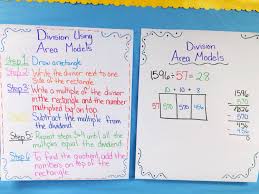 Division Using
Area Models
Step 1: Draw a rectangle
Step 2: Write the divisor next to one
side of the rectangle
Step 3: Write a multiple of the divisor
in the rectangle and the number
multiplied by on top
Subtract the multiple from
the dividend
Step 5: Repeat steps 3+4 until all the
multiples equal the dividend!
Step 6: To find the quotient, add the
numbers on top of the
rectangle
Division
Area Models
1596÷57=28
10 + 10 + 8
57
570
570
456
1596
-570
456
-456
0